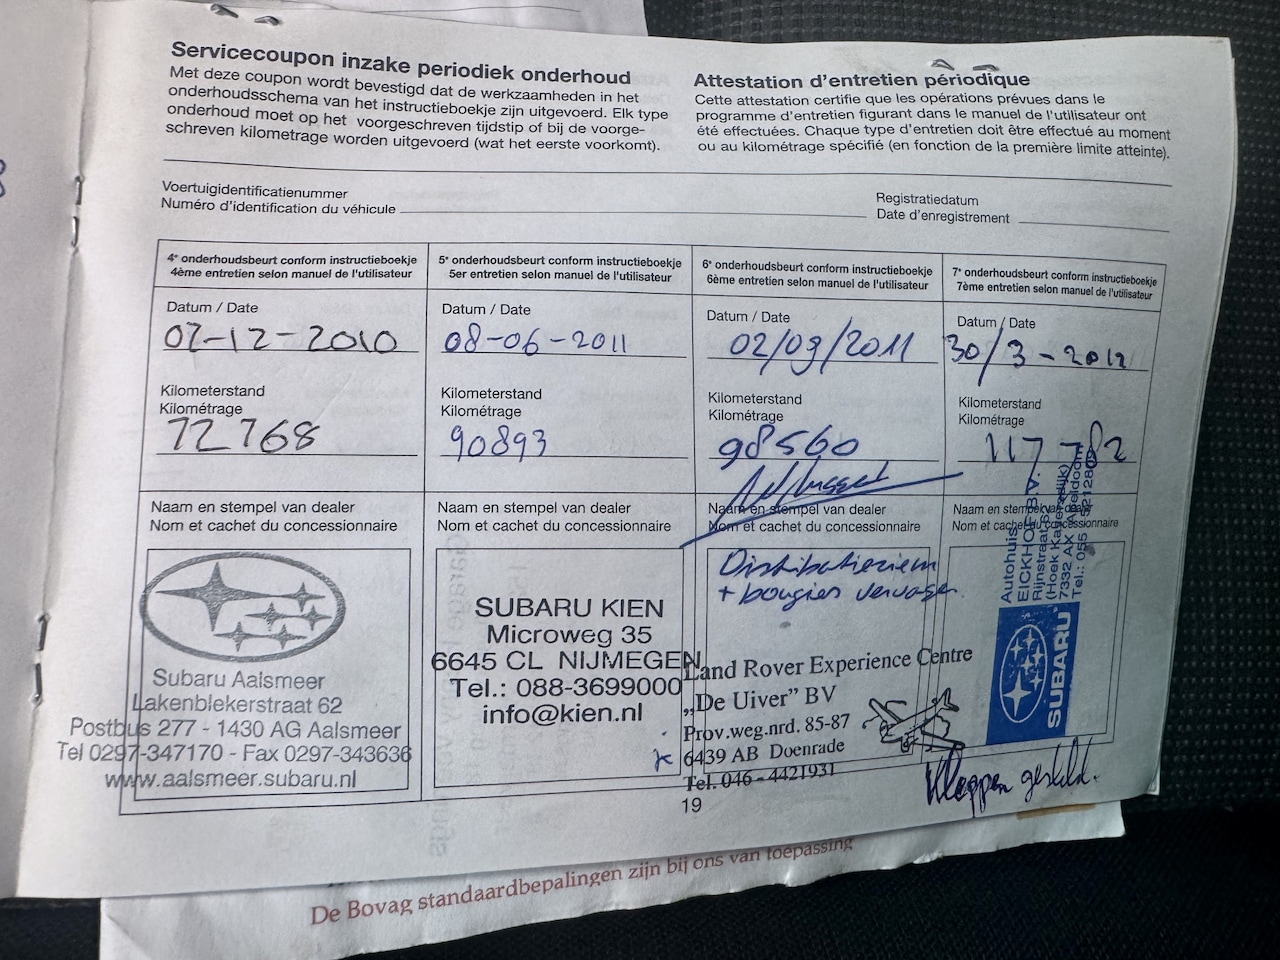 Servicecoupon inzake periodiek onderhoud
Met deze coupon wordt bevestigd dat de werkzaamheden in het
onderhoudsschema van het instructieboekje zijn uitgevoerd. Elk type
onderhoud moet op het voorgeschreven tijdstip of bij de voorge-
schreven kilometrage worden uitgevoerd (wat het eerste voorkomt).
Attestation d'entretien périodique
Cette attestation certifie que les opérations prévues dans le
programme d'entretien figurant dans le manuel de l'utilisateur ont
été effectuées. Chaque type d'entretien doit être effectué au moment
ou au kilométrage spécifié (en fonction de la première limite atteinte).
Voertuigidentificatienummer
Numéro d'identification du véhicule
Registratiedatum
Date d'enregistrement
4e onderhoudsbeurt conform instructieboekje
4ème entretien selon manuel de l'utilisateur
Datum / Date
07-12-2010
Kilometerstand
Kilométrage
72768
Naam en stempel van dealer
Nom et cachet du concessionnaire
Subaru Aalsmeer
Lakenblekerstraat 62
Postbus 277 - 1430 AG Aalsmeer
Tel 0297-347170 - Fax 0297-343636
www.aalsmeer.subaru.nl
5e onderhoudsbeurt conform instructieboekje
5er entretien selon manuel de l'utilisateur
Datum / Date
08-06-2011
Kilometerstand
Kilométrage
90893
Naam en stempel van dealer
Nom et cachet du concessionnaire
SUBARU KIEN
Microweg 35
6645 CL NIJMEGEN
Tel.: 088-3699000
info@kien.nl
6e onderhoudsbeurt conform instructieboekje
6ème entretien selon manuel de l'utilisateur
Datum / Date
02/09/2011
Kilometerstand
Kilométrage
98560
Naam en stempel van dealer
Nom et cachet du concessionnaire
Distributieriem
+ bougies vervagen
Land Rover Experience Centre
„De Uiver" BV
Prov.weg.nrd. 85-87
6439 AB Doenrade
Tel. 046-4421931
7e onderhoudsbeurt conform instructieboekje
7ème entretien selon manuel de l'utilisateur
Datum / Date
30/3-2012
Kilometerstand
Kilométrage
117782
Naam en stempel van dealer
Nom et cachet du concessionnaire
Autohuis
EICKHOF B.V.
Rijnstraat
7332 AX Apeldoorn
Tel.: 055
SUBARU
Kleppen gesteld.
19
De Bovag standaardbepalingen zijn bij ons van toepassing